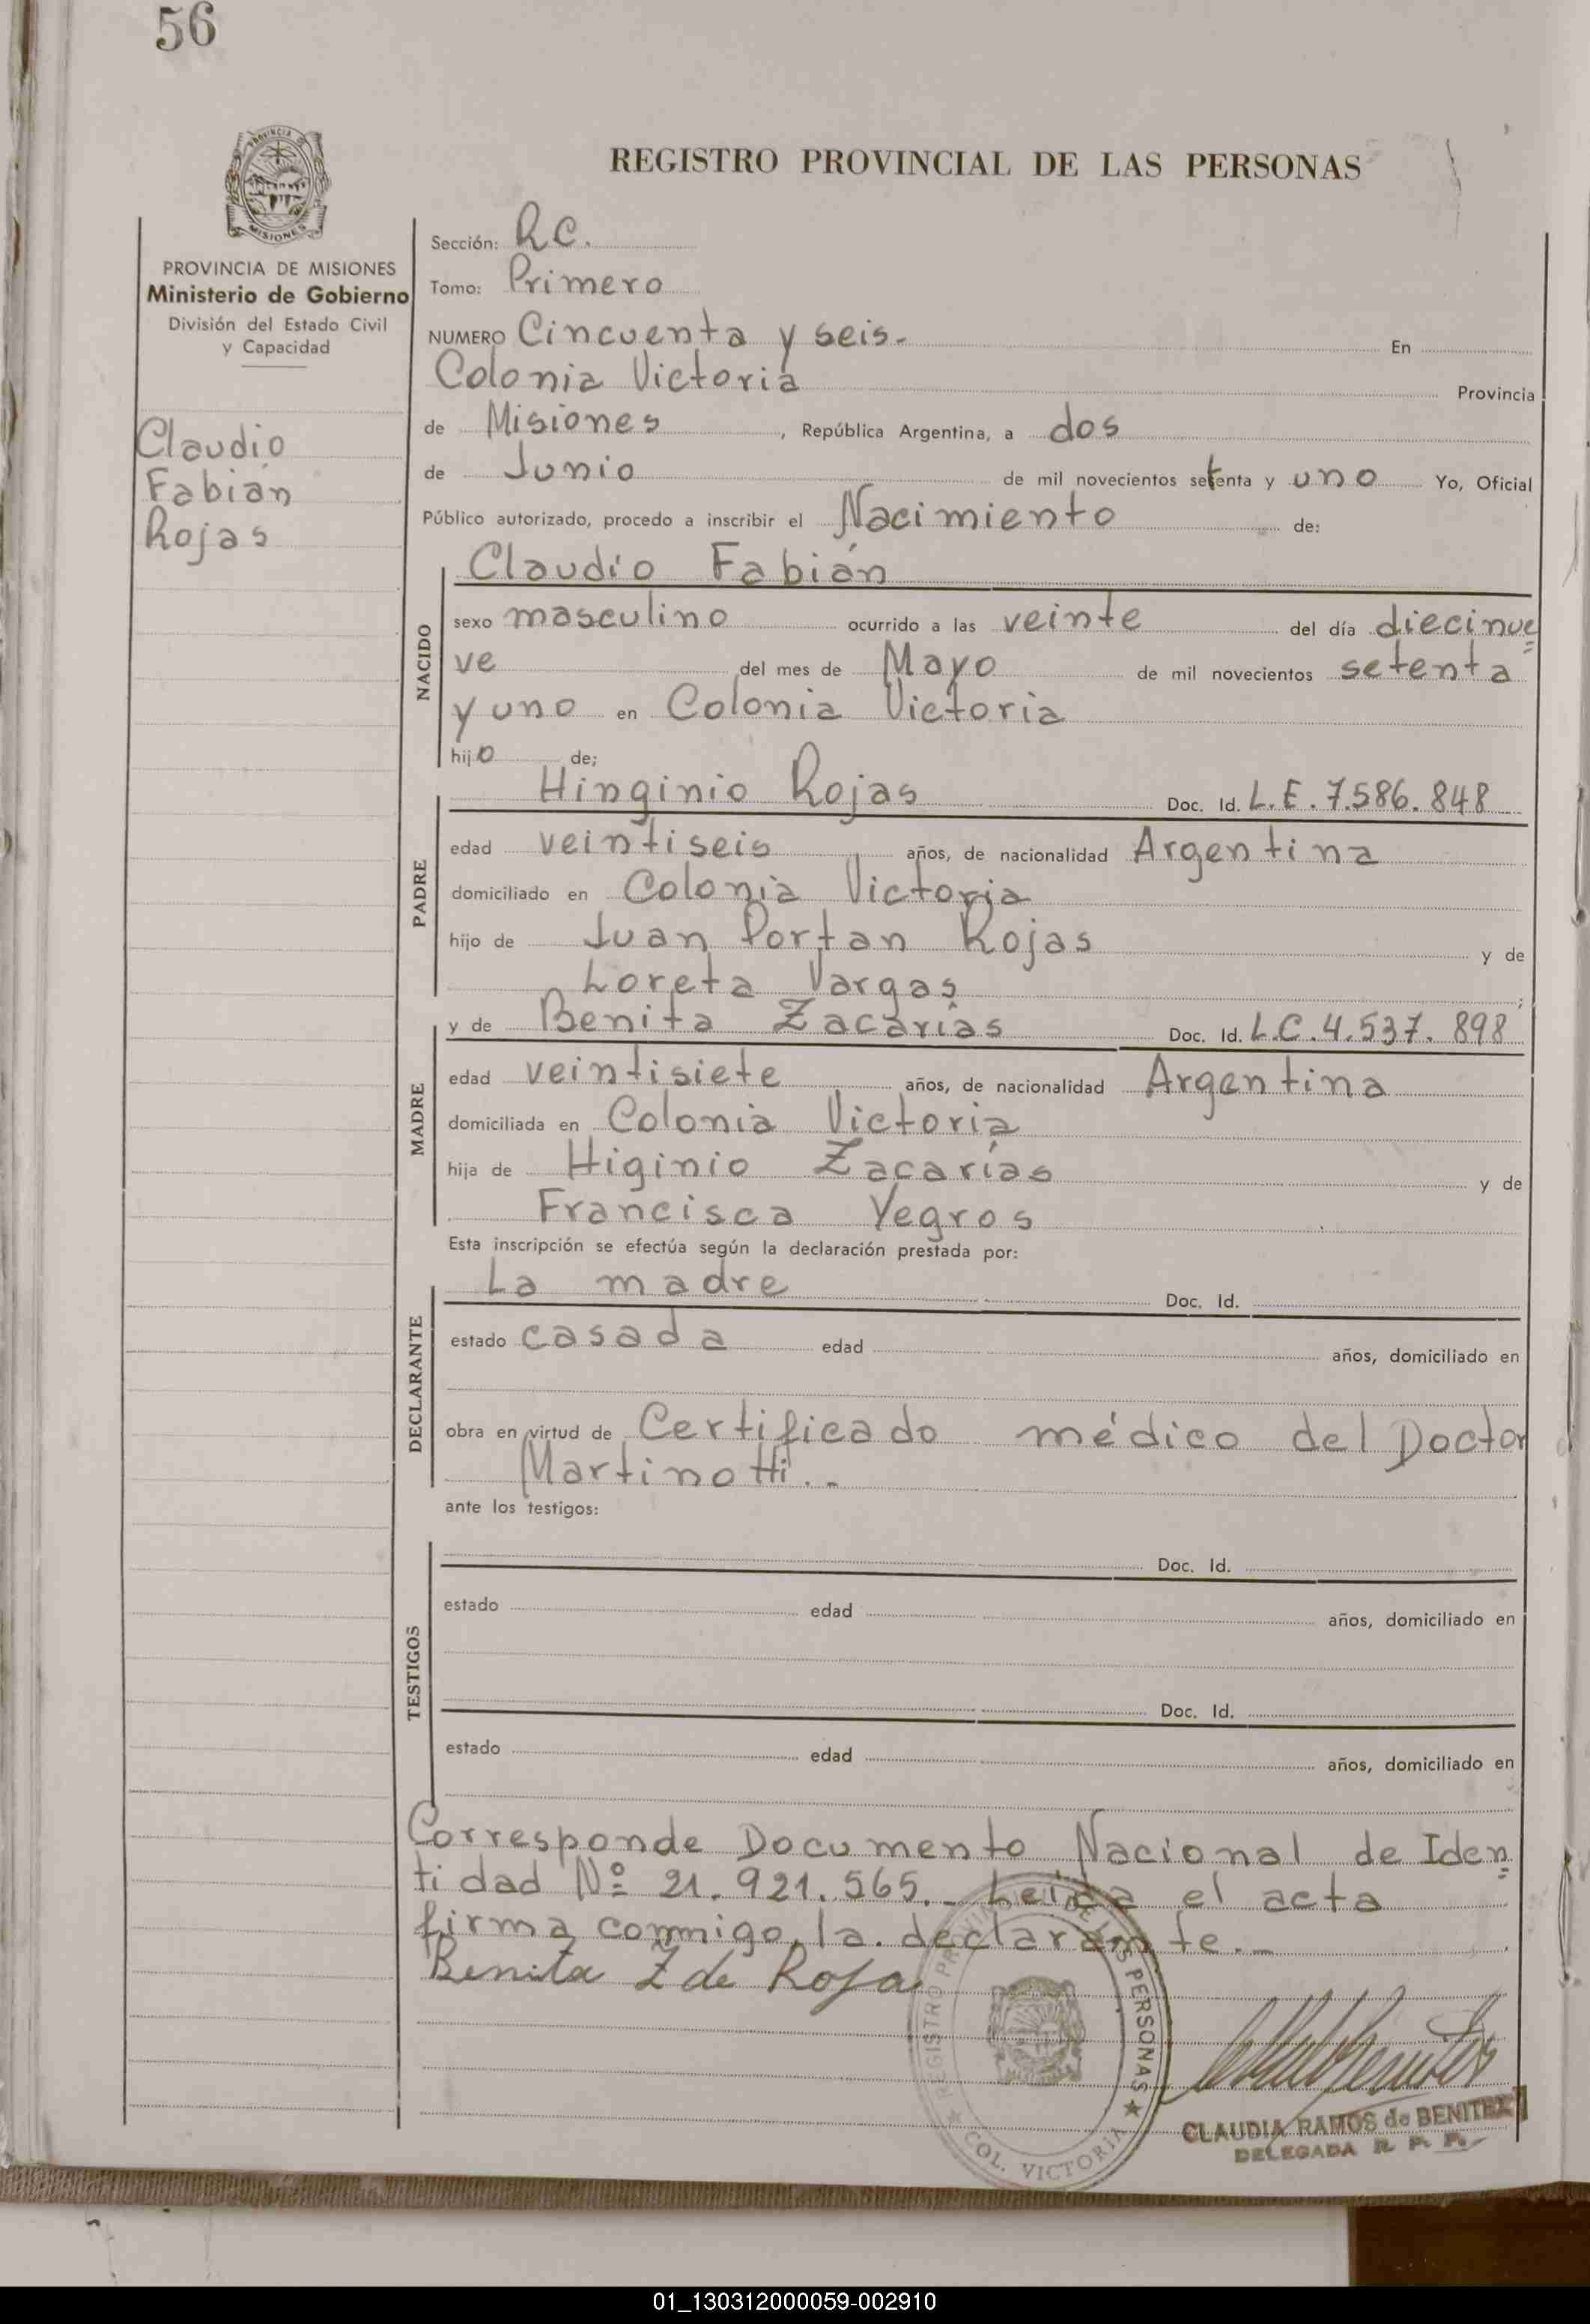 56
PROVINCIA
MISIONES
PROVINCIA DE MISIONES
Ministerio de Gobierno
División del Estado Civil
y Capacidad
Claudio
Fabián
Rojas
REGISTRO PROVINCIAL DE LAS PERSONAS
Sección: R.C.
Tomo: Primero
NUMERO Cincuenta y seis.- En
Colonia Victoria Provincia
de Misiones, República Argentina, a dos
de Junio de mil novecientos setenta y uno Yo, Oficial
Público autorizado, procedo a inscribir el Nacimiento de:
NACIDO
Claudio Fabián
sexo masculino ocurrido a las veinte del día diecinue=
ve del mes de Mayo de mil novecientos setenta
y uno en Colonia Victoria
hijo de;
PADRE
Hinginio Rojas Doc. Id. L.E. 7.586.848
edad veintiseis años, de nacionalidad Argentina
domiciliado en Colonia Victoria
hijo de Juan Portan Rojas y de
Loreta Vargas;
MADRE
y de Benita Zacarías Doc. Id. L.C. 4.537.898
edad veintisiete años, de nacionalidad Argentina
domiciliada en Colonia Victoria
hija de Higinio Zacarías y de
Francisca Yegros
Esta inscripción se efectúa según la declaración prestada por:
DECLARANTE
La madre Doc. Id.
estado casada edad años, domiciliado en
obra en virtud de Certificado médico del Doctor
Martinotti.-
ante los testigos:
TESTIGOS
Doc. Id.
estado edad años, domiciliado en
Doc. Id.
estado edad años, domiciliado en
Corresponde Documento Nacional de Iden=
tidad Nº 21.921.565.- Leída el acta
firma conmigo, la declarante.-
Benita Z de Roja
REGISTRO PROVINCIAL DE LAS PERSONAS
COL. VICTORIA
CLAUDIA RAMOS de BENITEZ
DELEGADA R. P. P.
01_130312000059-002910